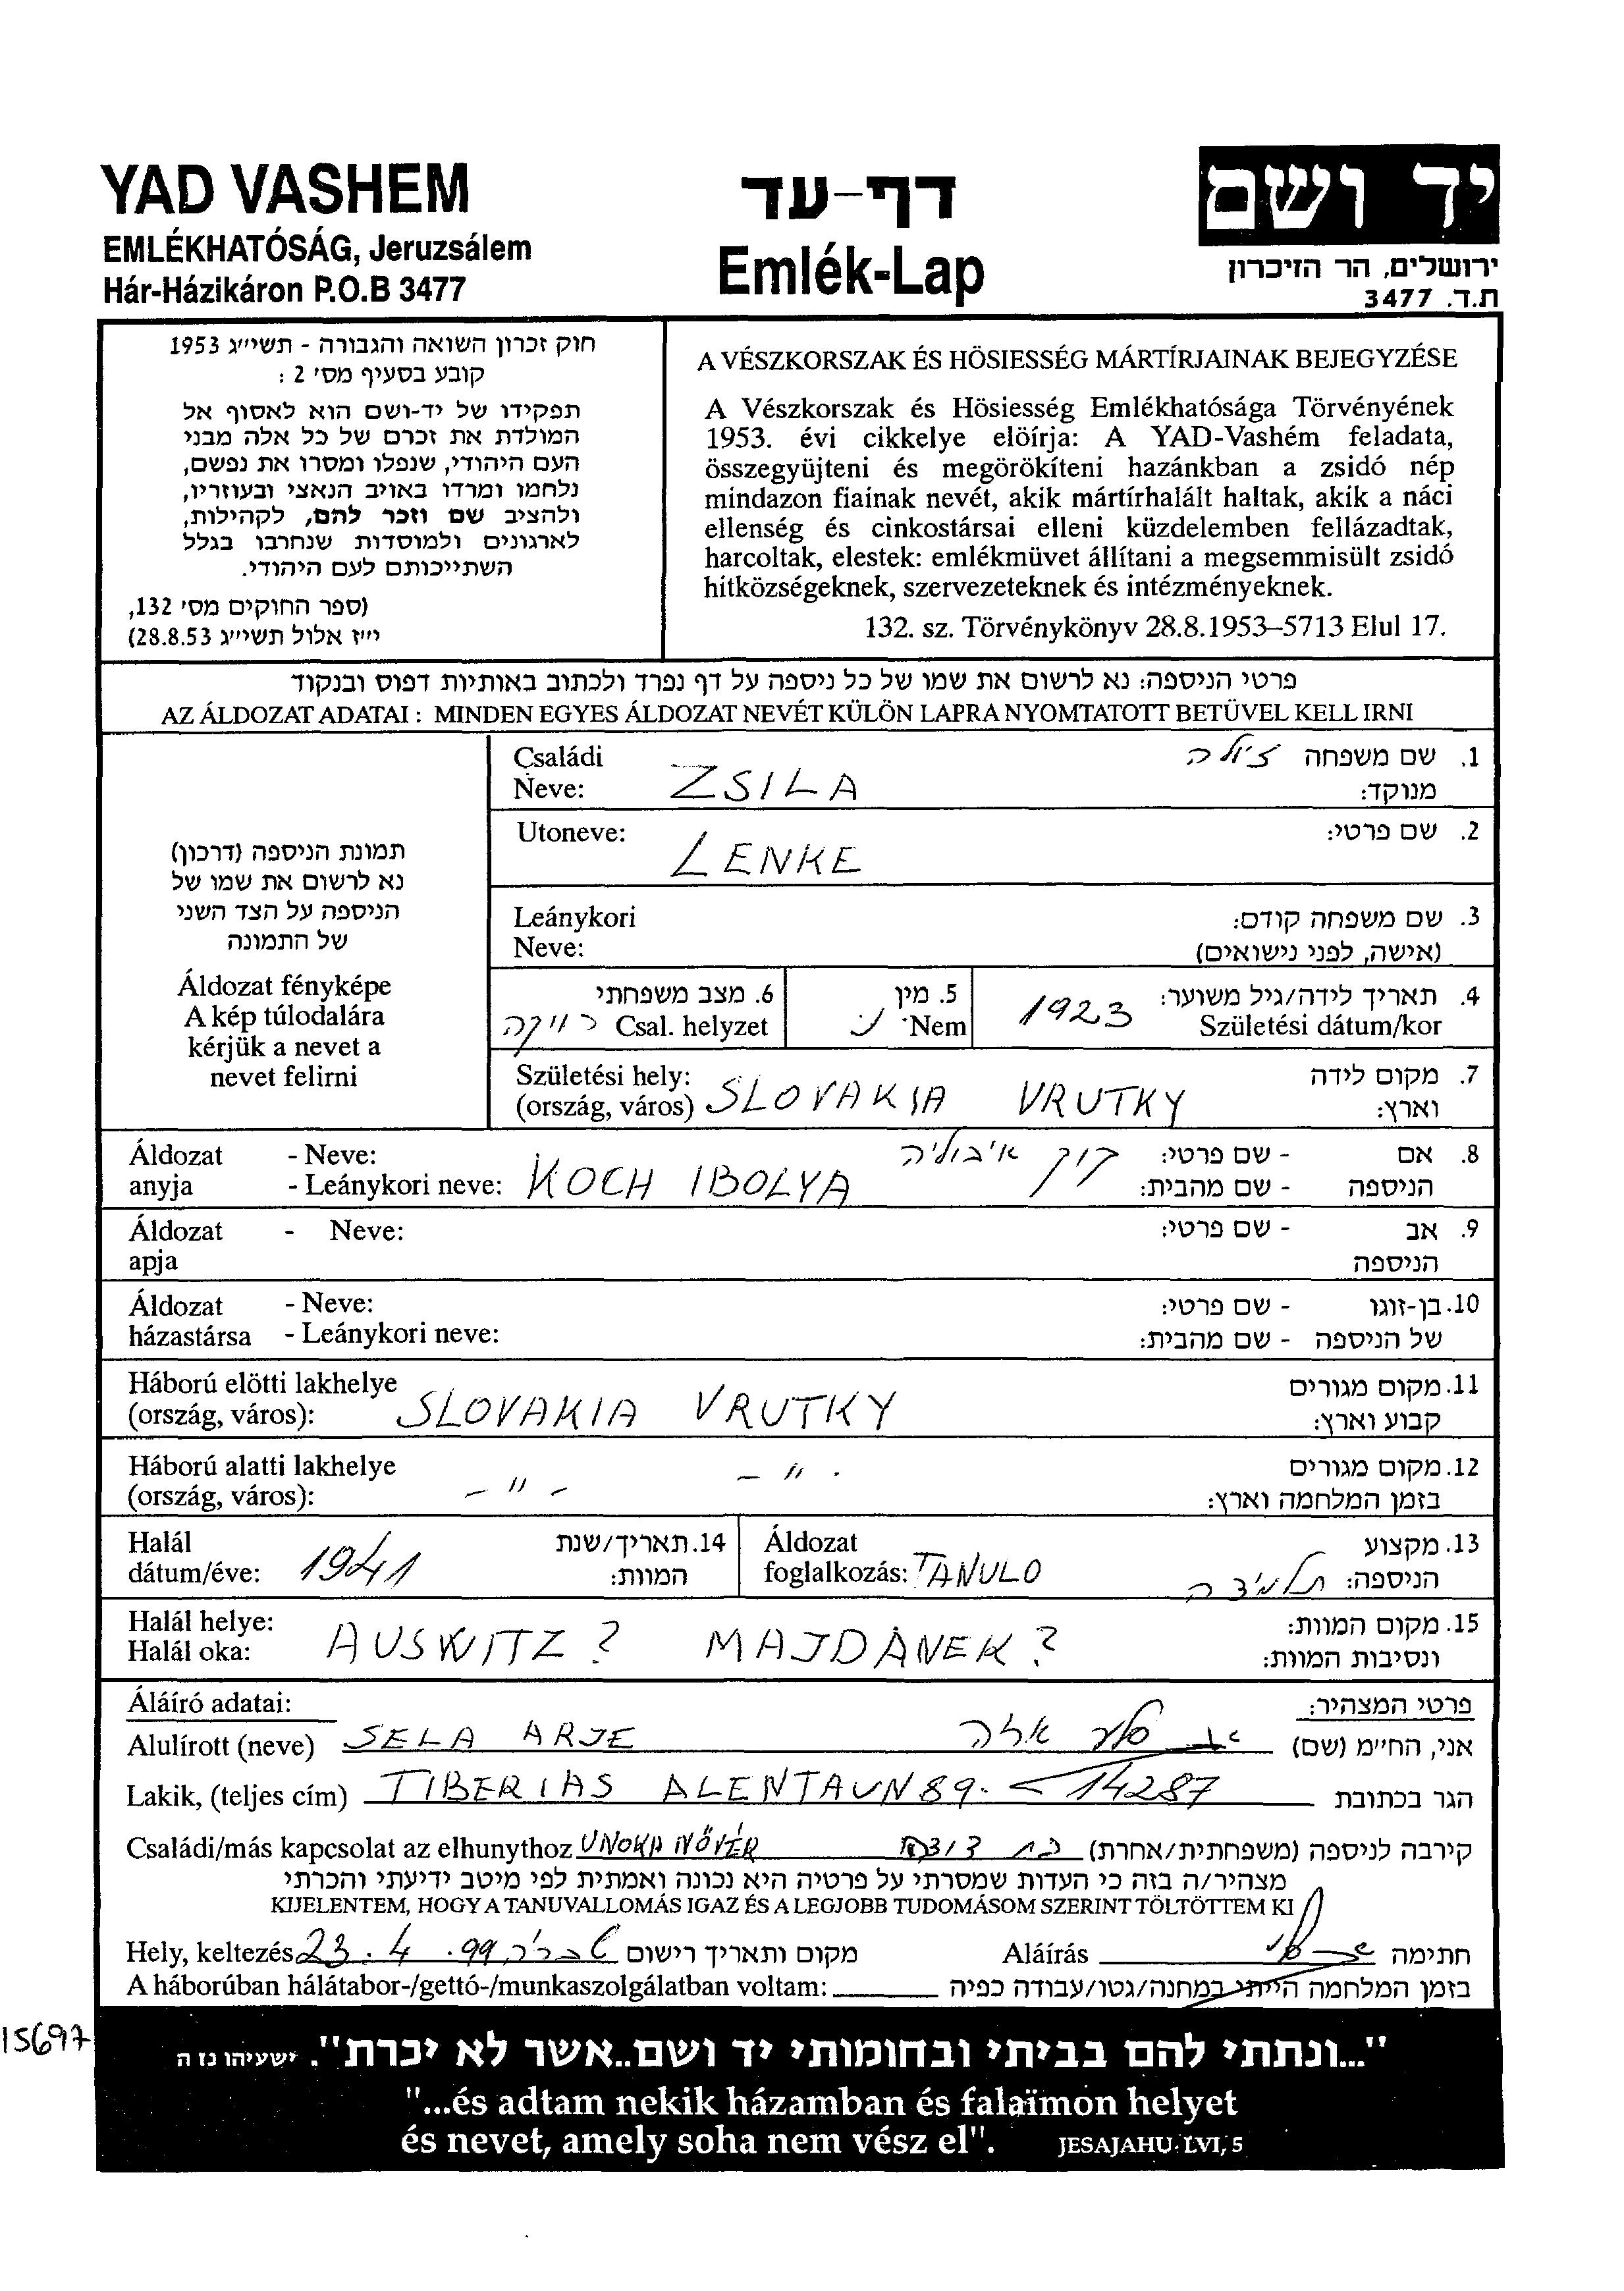 YAD VASHEM
EMLÉKHATÓSÁG, Jeruzsálem
Hár-Házikáron P.O.B 3477
דף-עד
Emlék-Lap
יד ושם
ירושלים, הר הזיכרון
ת.ד. 3477
חוק זכרון השואה והגבורה - תשי״ג 1953
קובע בסעיף מס׳ 2 :
תפקידו של יד-ושם הוא לאסוף אל
המולדת את זכרם של כל אלה מבני
העם היהודי, שנפלו ומסרו את נפשם,
נלחמו ומרדו באויב הנאצי ובעוזריו,
ולהציב שם וזכר להם, לקהילות,
לארגונים ולמוסדות שנחרבו בגלל
השתייכותם לעם היהודי.
(ספר החוקים מס׳ 132,
י״ז אלול תשי״ג 28.8.53)
A VÉSZKORSZAK ÉS HÖSIESSÉG MÁRTÍRJAINAK BEJEGYZÉSE
A Vészkorszak és Hösiesség Emlékhatósága Törvényének
1953. évi cikkelye elöírja: A YAD-Vashém feladata,
összegyüjteni és megörökíteni hazánkban a zsidó nép
mindazon fiainak nevét, akik mártírhalált haltak, akik a náci
ellenség és cinkostársai elleni küzdelemben fellázadtak,
harcoltak, elestek: emlékmüvet állítani a megsemmisült zsidó
hitközségeknek, szervezeteknek és intézményeknek.
132. sz. Törvénykönyv 28.8.1953–5713 Elul 17.
פרטי הניספה: נא לרשום את שמו של כל ניספה על דף נפרד ולכתוב באותיות דפוס ובנקוד
AZ ÁLDOZAT ADATAI : MINDEN EGYES ÁLDOZAT NEVÉT KÜLÖN LAPRA NYOMTATOTT BETÜVEL KELL IRNI
תמונת הניספה (דרכון)
נא לרשום את שמו של
הניספה על הצד השני
של התמונה
Áldozat fényképe
A kép túlodalára
kérjük a nevet a
nevet felirni
Családi
Neve: ZSILA
1. שם משפחה ז׳ילה
מנוקד:
Utoneve: LENKE
2. שם פרטי:
Leánykori
Neve:
3. שם משפחה קודם:
(אישה, לפני נישואים)
6. מצב משפחתי
Csal. helyzet רווקה
5. מין
Nem נ
4. תאריך לידה/גיל משוער:
Születési dátum/kor 1923
Születési hely:
(ország, város) SLOVAKIA VRUTKY
7. מקום לידה
וארץ:
Áldozat - Neve:
anyja - Leánykori neve: KOCH IBOLYA
קוך איבוליה
8. אם - שם פרטי:
הניספה - שם מהבית:
Áldozat - Neve:
apja
9. אב - שם פרטי:
הניספה
Áldozat - Neve:
házastársa - Leánykori neve:
10. בן-זוגו - שם פרטי:
של הניספה - שם מהבית:
Háború elötti lakhelye
(ország, város): SLOVAKIA VRUTKY
11. מקום מגורים
קבוע וארץ:
Háború alatti lakhelye
(ország, város): - " - - " -
12. מקום מגורים
בזמן המלחמה וארץ:
Halál
dátum/éve: 1941
14. תאריך/שנת
המוות:
Áldozat
foglalkozás: TANULO
13. מקצוע
הניספה: תלמידה
Halál helye:
Halál oka: AUSWITZ ? MAJDANEK ?
15. מקום המוות:
ונסיבות המוות:
Áláíró adatai:
פרטי המצהיר:
Alulírott (neve) SELA ARJE
אני, הח״מ (שם) סלע אריה
Lakik, (teljes cím) TIBERIAS ALENTAUN 89. 14287
הגר בכתובת
Családi/más kapcsolat az elhunythoz UNOKA NŐVÉR
קירבה לניספה (משפחתית/אחרת) בת דודה
מצהיר/ה בזה כי העדות שמסרתי על פרטיה היא נכונה ואמתית לפי מיטב ידיעתי והכרתי
KIJELENTEM, HOGY A TANUVALLOMÁS IGAZ ÉS A LEGJOBB TUDOMÁSOM SZERINT TÖLTÖTTEM KI
Hely, keltezés 23.4.99 טבריה מקום ותאריך רישום
Aláírás חתימה
A háborúban hálátabor-/gettó-/munkaszolgálatban voltam:
בזמן המלחמה הייתי במחנה/גטו/עבודה כפיה
15697
"...ונתתי להם בביתי ובחומותי יד ושם..אשר לא יכרת". ישעיהו נז ה
"...és adtam nekik házamban és falaïmon helyet
és nevet, amely soha nem vész el". JESAJAHU. LVI, 5